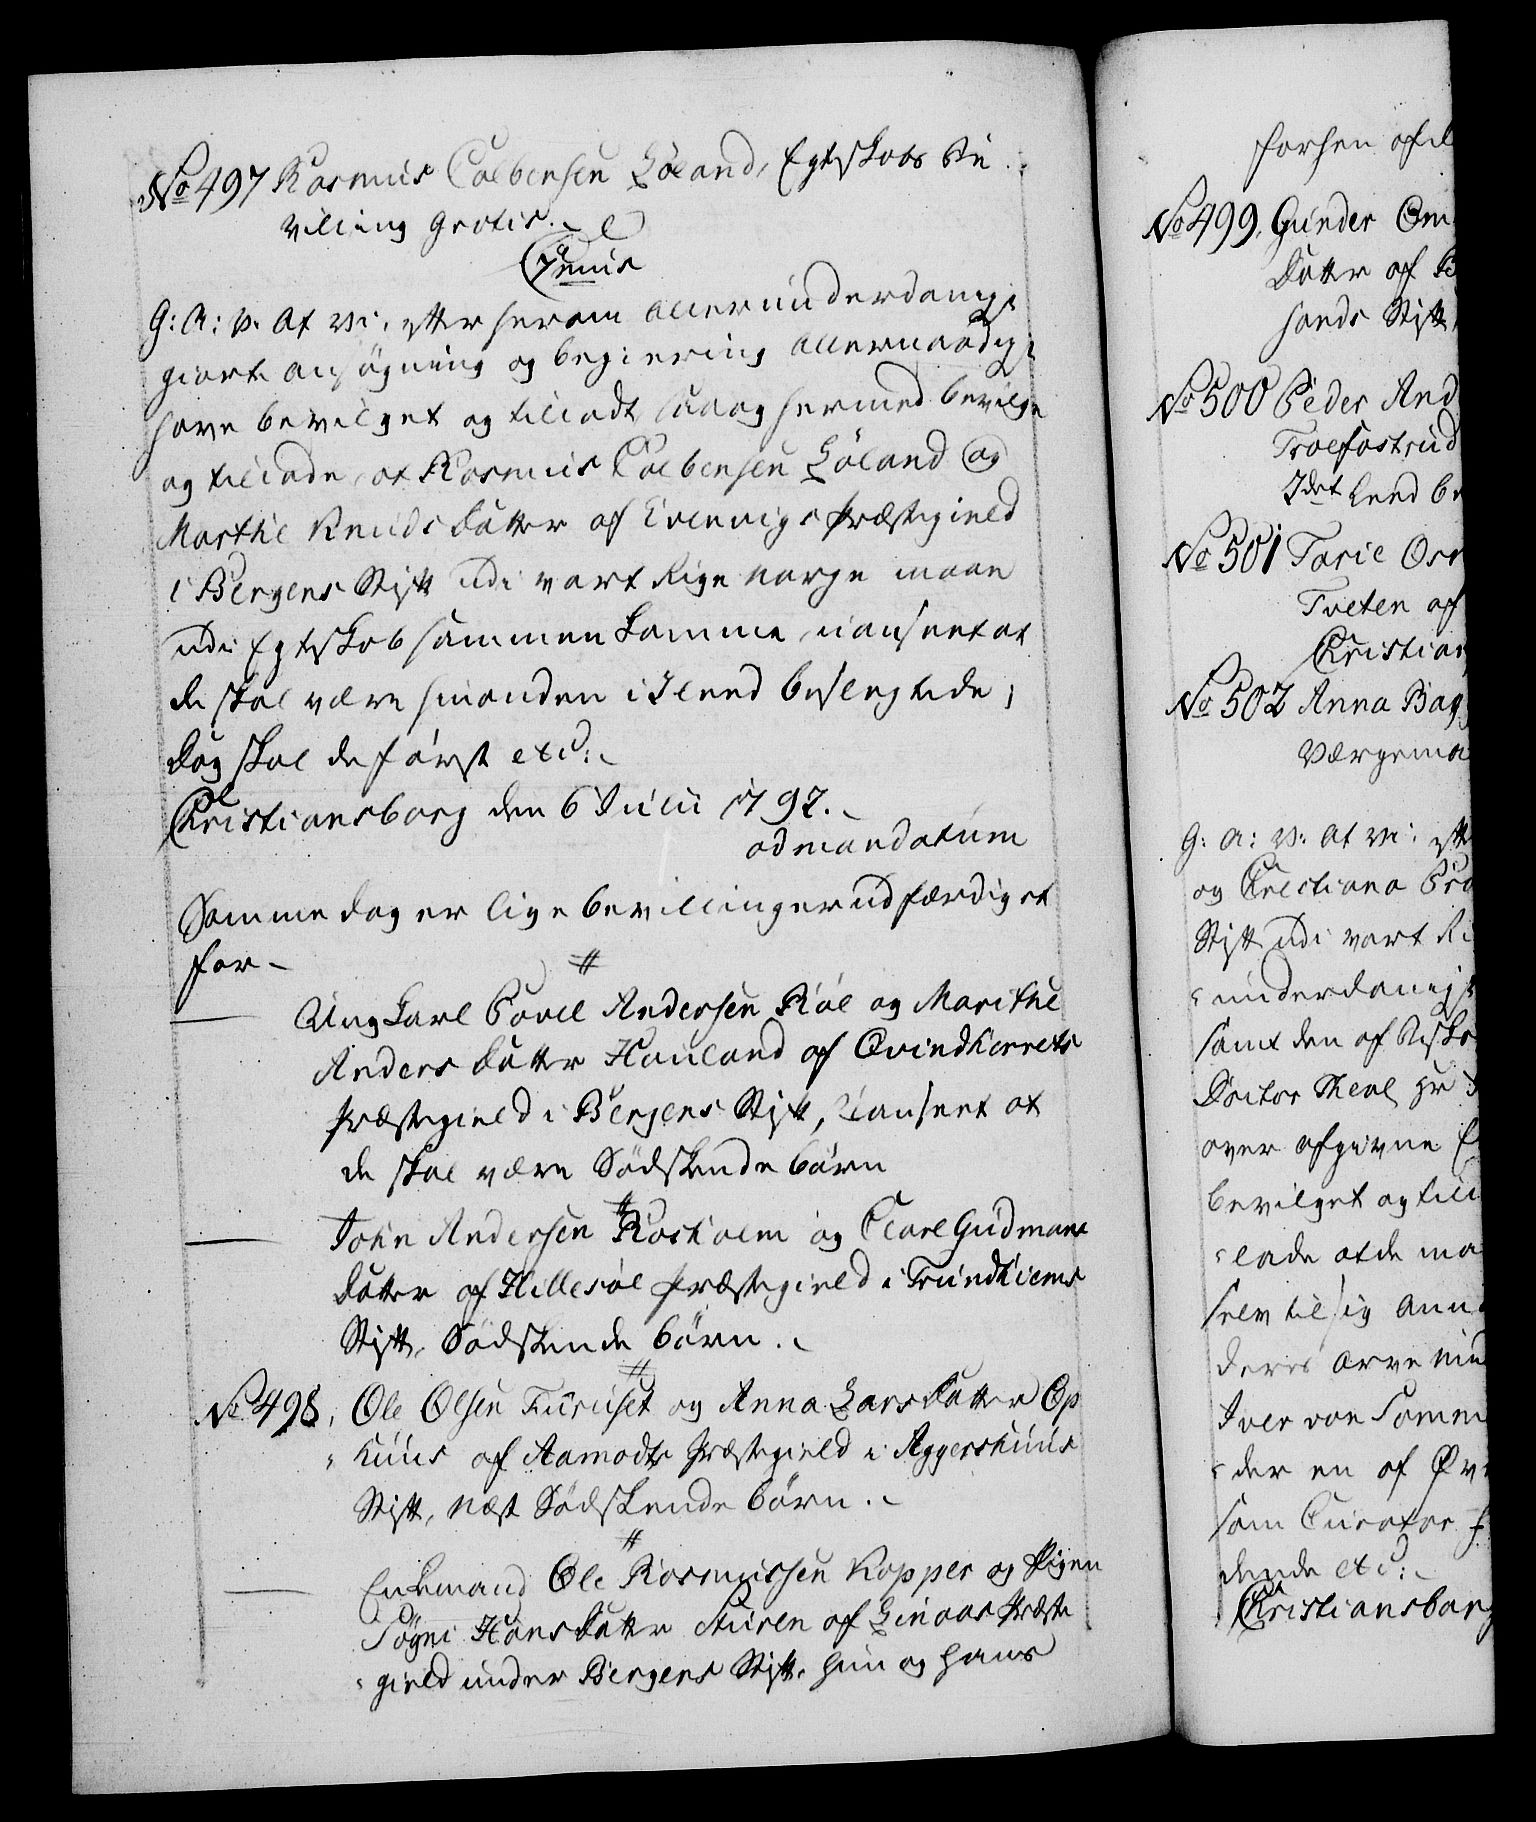 No 497 Rasmus Colbensen Løland, Egteskabs Be
villing gratis.
Genus
G: A: v. At vi, efter herom allerunderdanigst
giort ansøgning og begiering allernaadigst
have bevilget og tilladt, saa og hermed bevilge
og tillade, at Rasmus Colbensen Løland og
Marthe Knuds datter af Evenvigs Præstegield
i Bergens Stift udi vort Rige Norge maae
udi Egteskab sammen komme, uanseet at
de skal være hinanden i leed beslegtede,
dog skal de først etc:
Christiansborg den 6 Julii 1797.
ad mandatum
Samme dag er lige bevillinger udfærdiget
for
Ung Karl Povel Andersen Røl og Marithe
Anders datter Hauland af Qvindherrets
Præstegield i Bergens Stift, Uanseet at
de skal være Sødskende børn
John Andersen Rosholm og Carl Gudmans
datter af Hillesøe Præstegield i Trundhiems
Stift, Sødskende børn.
No 498, Ole Olsen Furuset og Anna Lars datter Op
huus af Aamodts Præstegield i Aggershuus
Stift, næst Sødskende børn.
Enkemand Ole Rasmussen Kopper og Pigen
Søgni Hans datter Sturen af Linaas Præste
gield under Bergens Stift, hun og hans
forhen afd
No 499, Gunder Om
datter af B
sands Stift
No 500 Peder And
Trolfostrud
3det Leed be
No 501 Tarie Os
Tveten af
Christian
No 502 Anna Bag
Værgema
G: A: v: At vi: eft
og Christiana Fr
Stift udi vort Ri
underdanigst
samt den af Bisko
Doctor Theol hr
over afgivne E
bevilget og till
lade at de ma
selv til sig ann
deres Arve mid
Iver von Somm
der en af Øv
som Curator h
dende etc:
Christiansborg